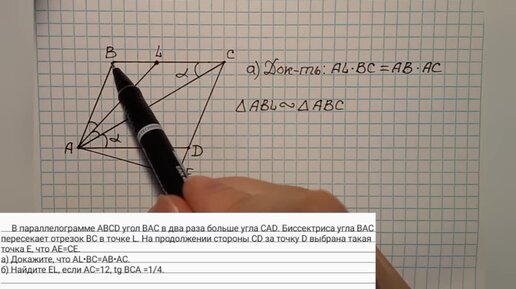 B L C
а) Док-ть: AL·BC=AB·AC
α
△ABL∾△ABC
α
A D
E
В параллелограмме ABCD угол BAC в два раза больше угла CAD. Биссектриса угла BAC
пересекает отрезок BC в точке L. На продолжении стороны CD за точку D выбрана такая
точка E, что AE=CE.
а) Докажите, что AL•BC=AB•AC.
б) Найдите EL, если AC=12, tg BCA =1/4.